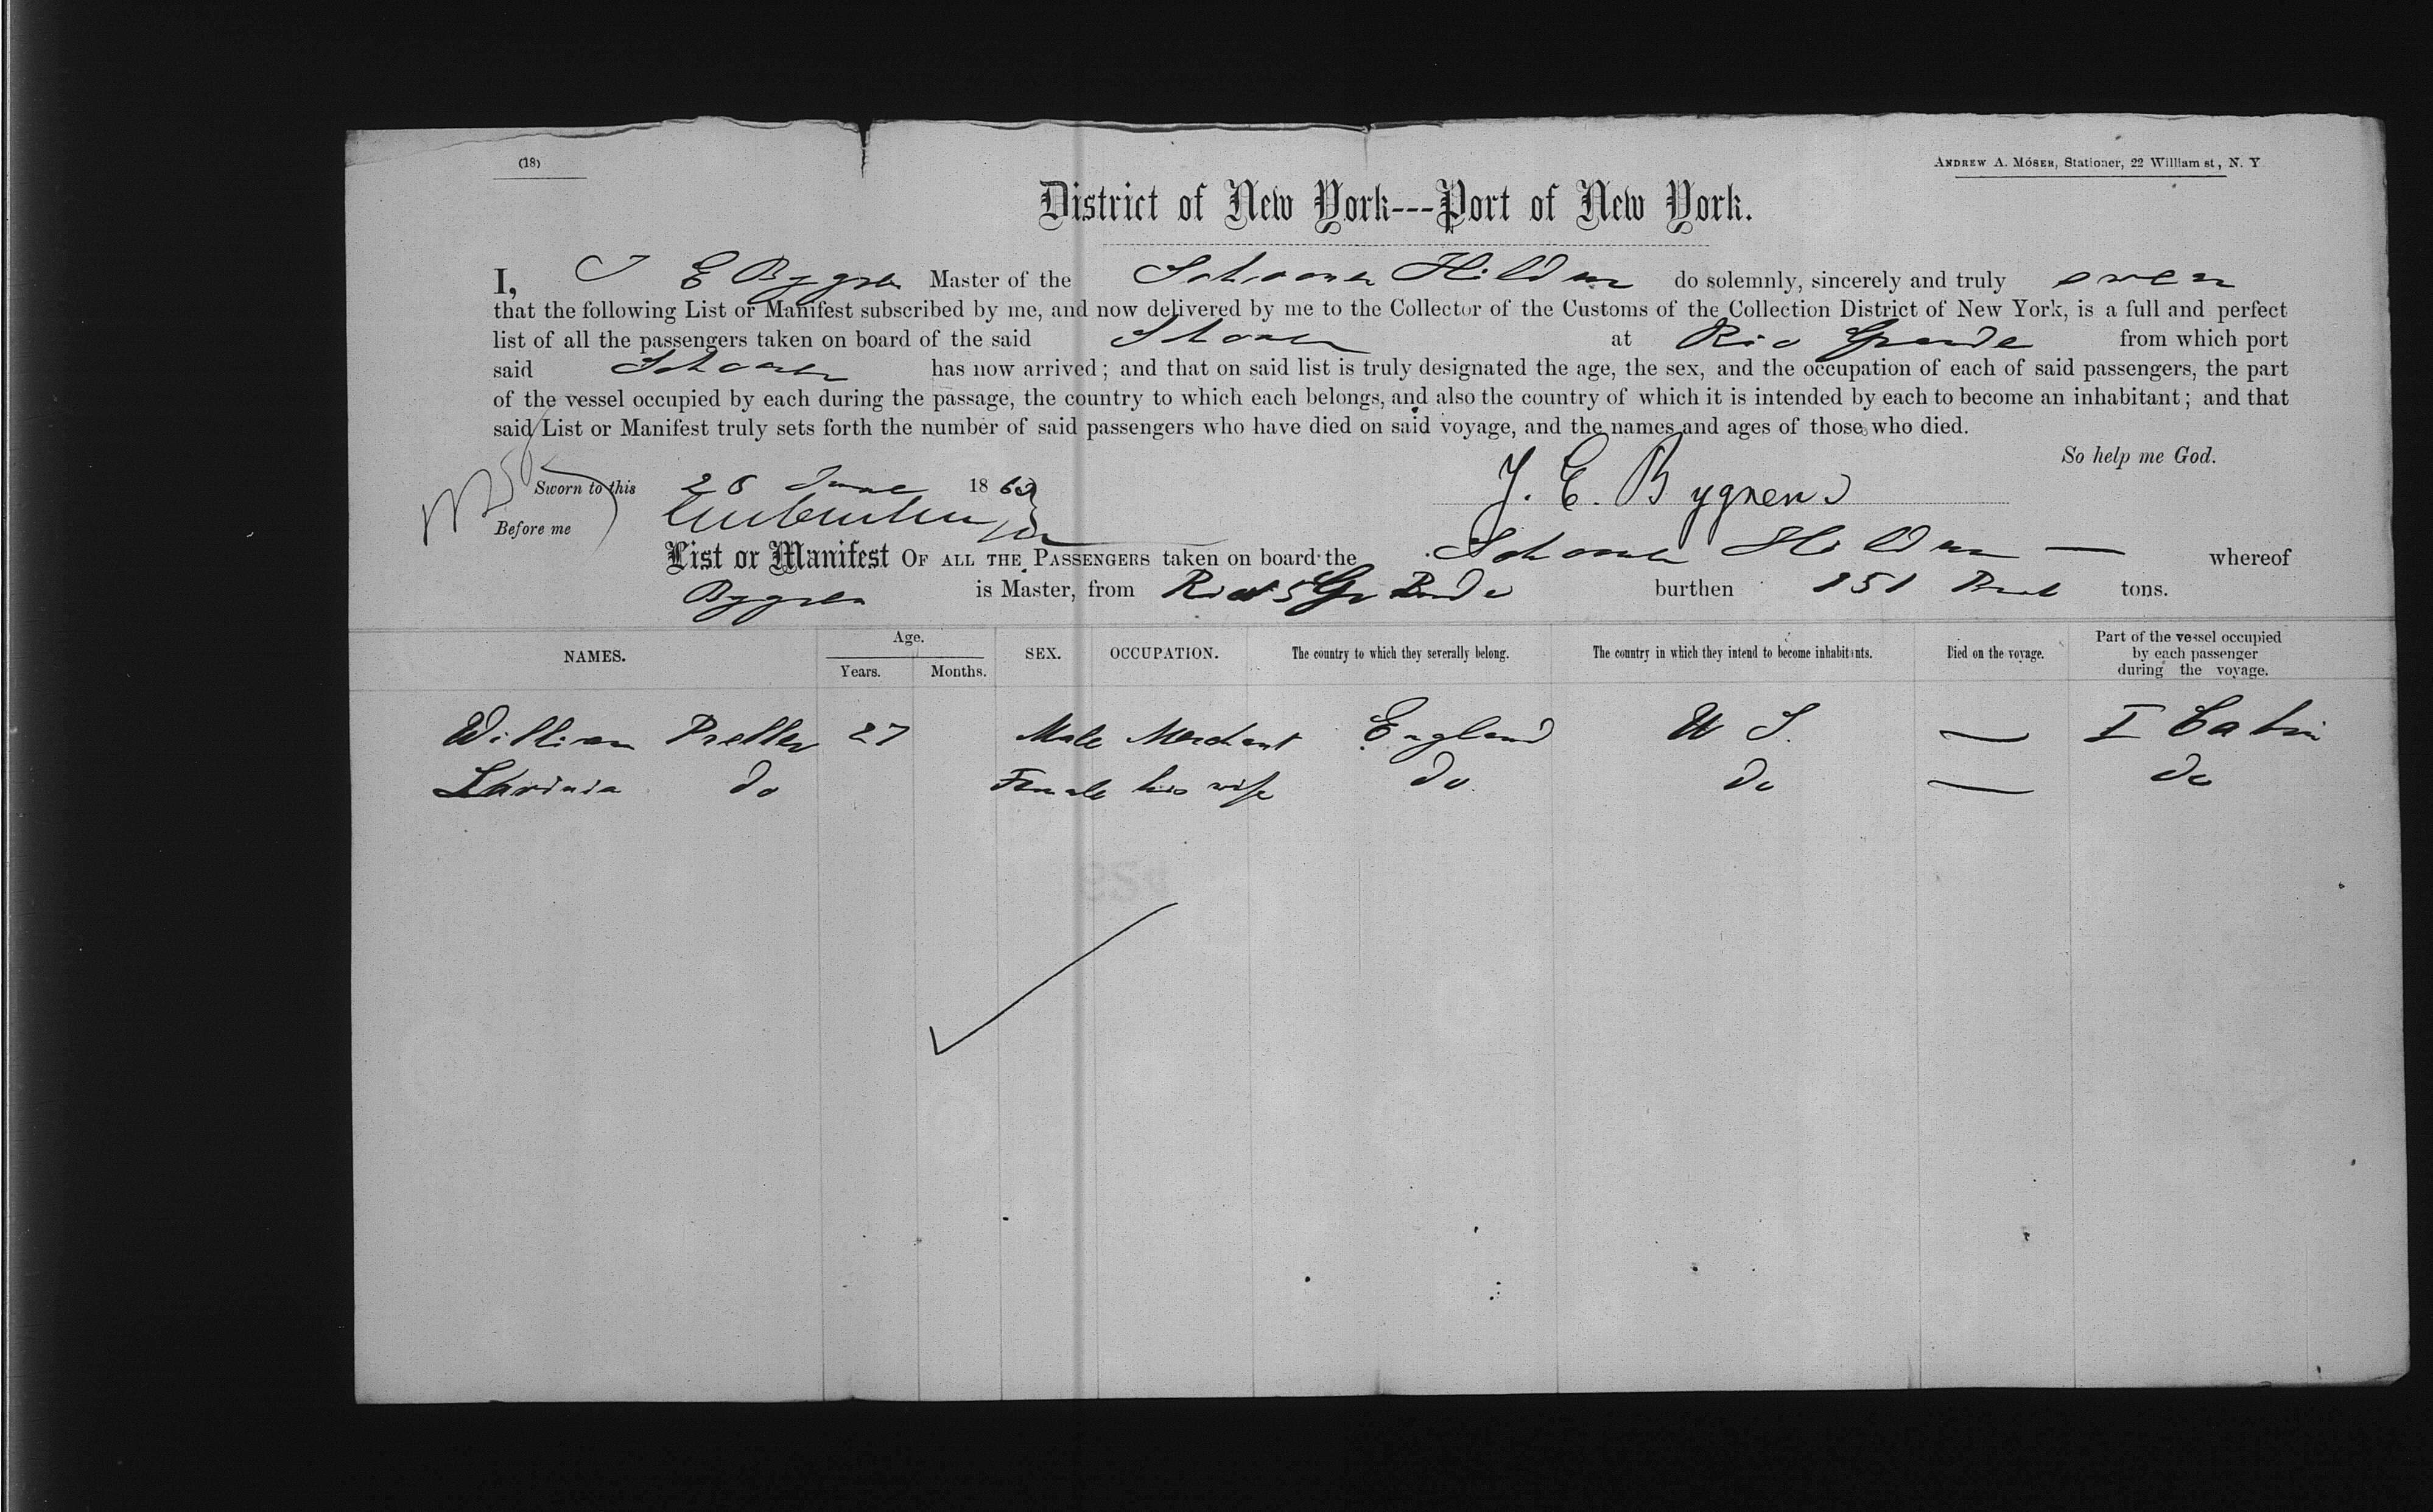 (18)
ANDREW A. MOSER, Stationer, 22 William st, N. Y
District of New York---Port of New York.
I, J E Bygren Master of the Schooner Hildur do solemnly, sincerely and truly swear
that the following List or Manifest subscribed by me, and now delivered by me to the Collector of the Customs of the Collection District of New York, is a full and perfect
list of all the passengers taken on board of the said Shoner at Rio Grande from which port
said Schooner has now arrived; and that on said list is truly designated the age, the sex, and the occupation of each of said passengers, the part
of the vessel occupied by each during the passage, the country to which each belongs, and also the country of which it is intended by each to become an inhabitant; and that
said List or Manifest truly sets forth the number of said passengers who have died on said voyage, and the names and ages of those who died.
So help me God.
Sworn to this 26 June 186
J. E. Bygren
Before me
List or Manifest OF ALL THE PASSENGERS taken on board the Schooner Hildur — whereof
Bygren is Master, from Rio Grande burthen 151 tons.
NAMES. Age. Years. Months. SEX. OCCUPATION. The country to which they severally belong. The country in which they intend to become inhabitants. Died on the voyage. Part of the vessel occupied by each passenger during the voyage.
William Preller 27 Male Merchant England U S. — I Cabin
Lavinia do Female his wife do do — do